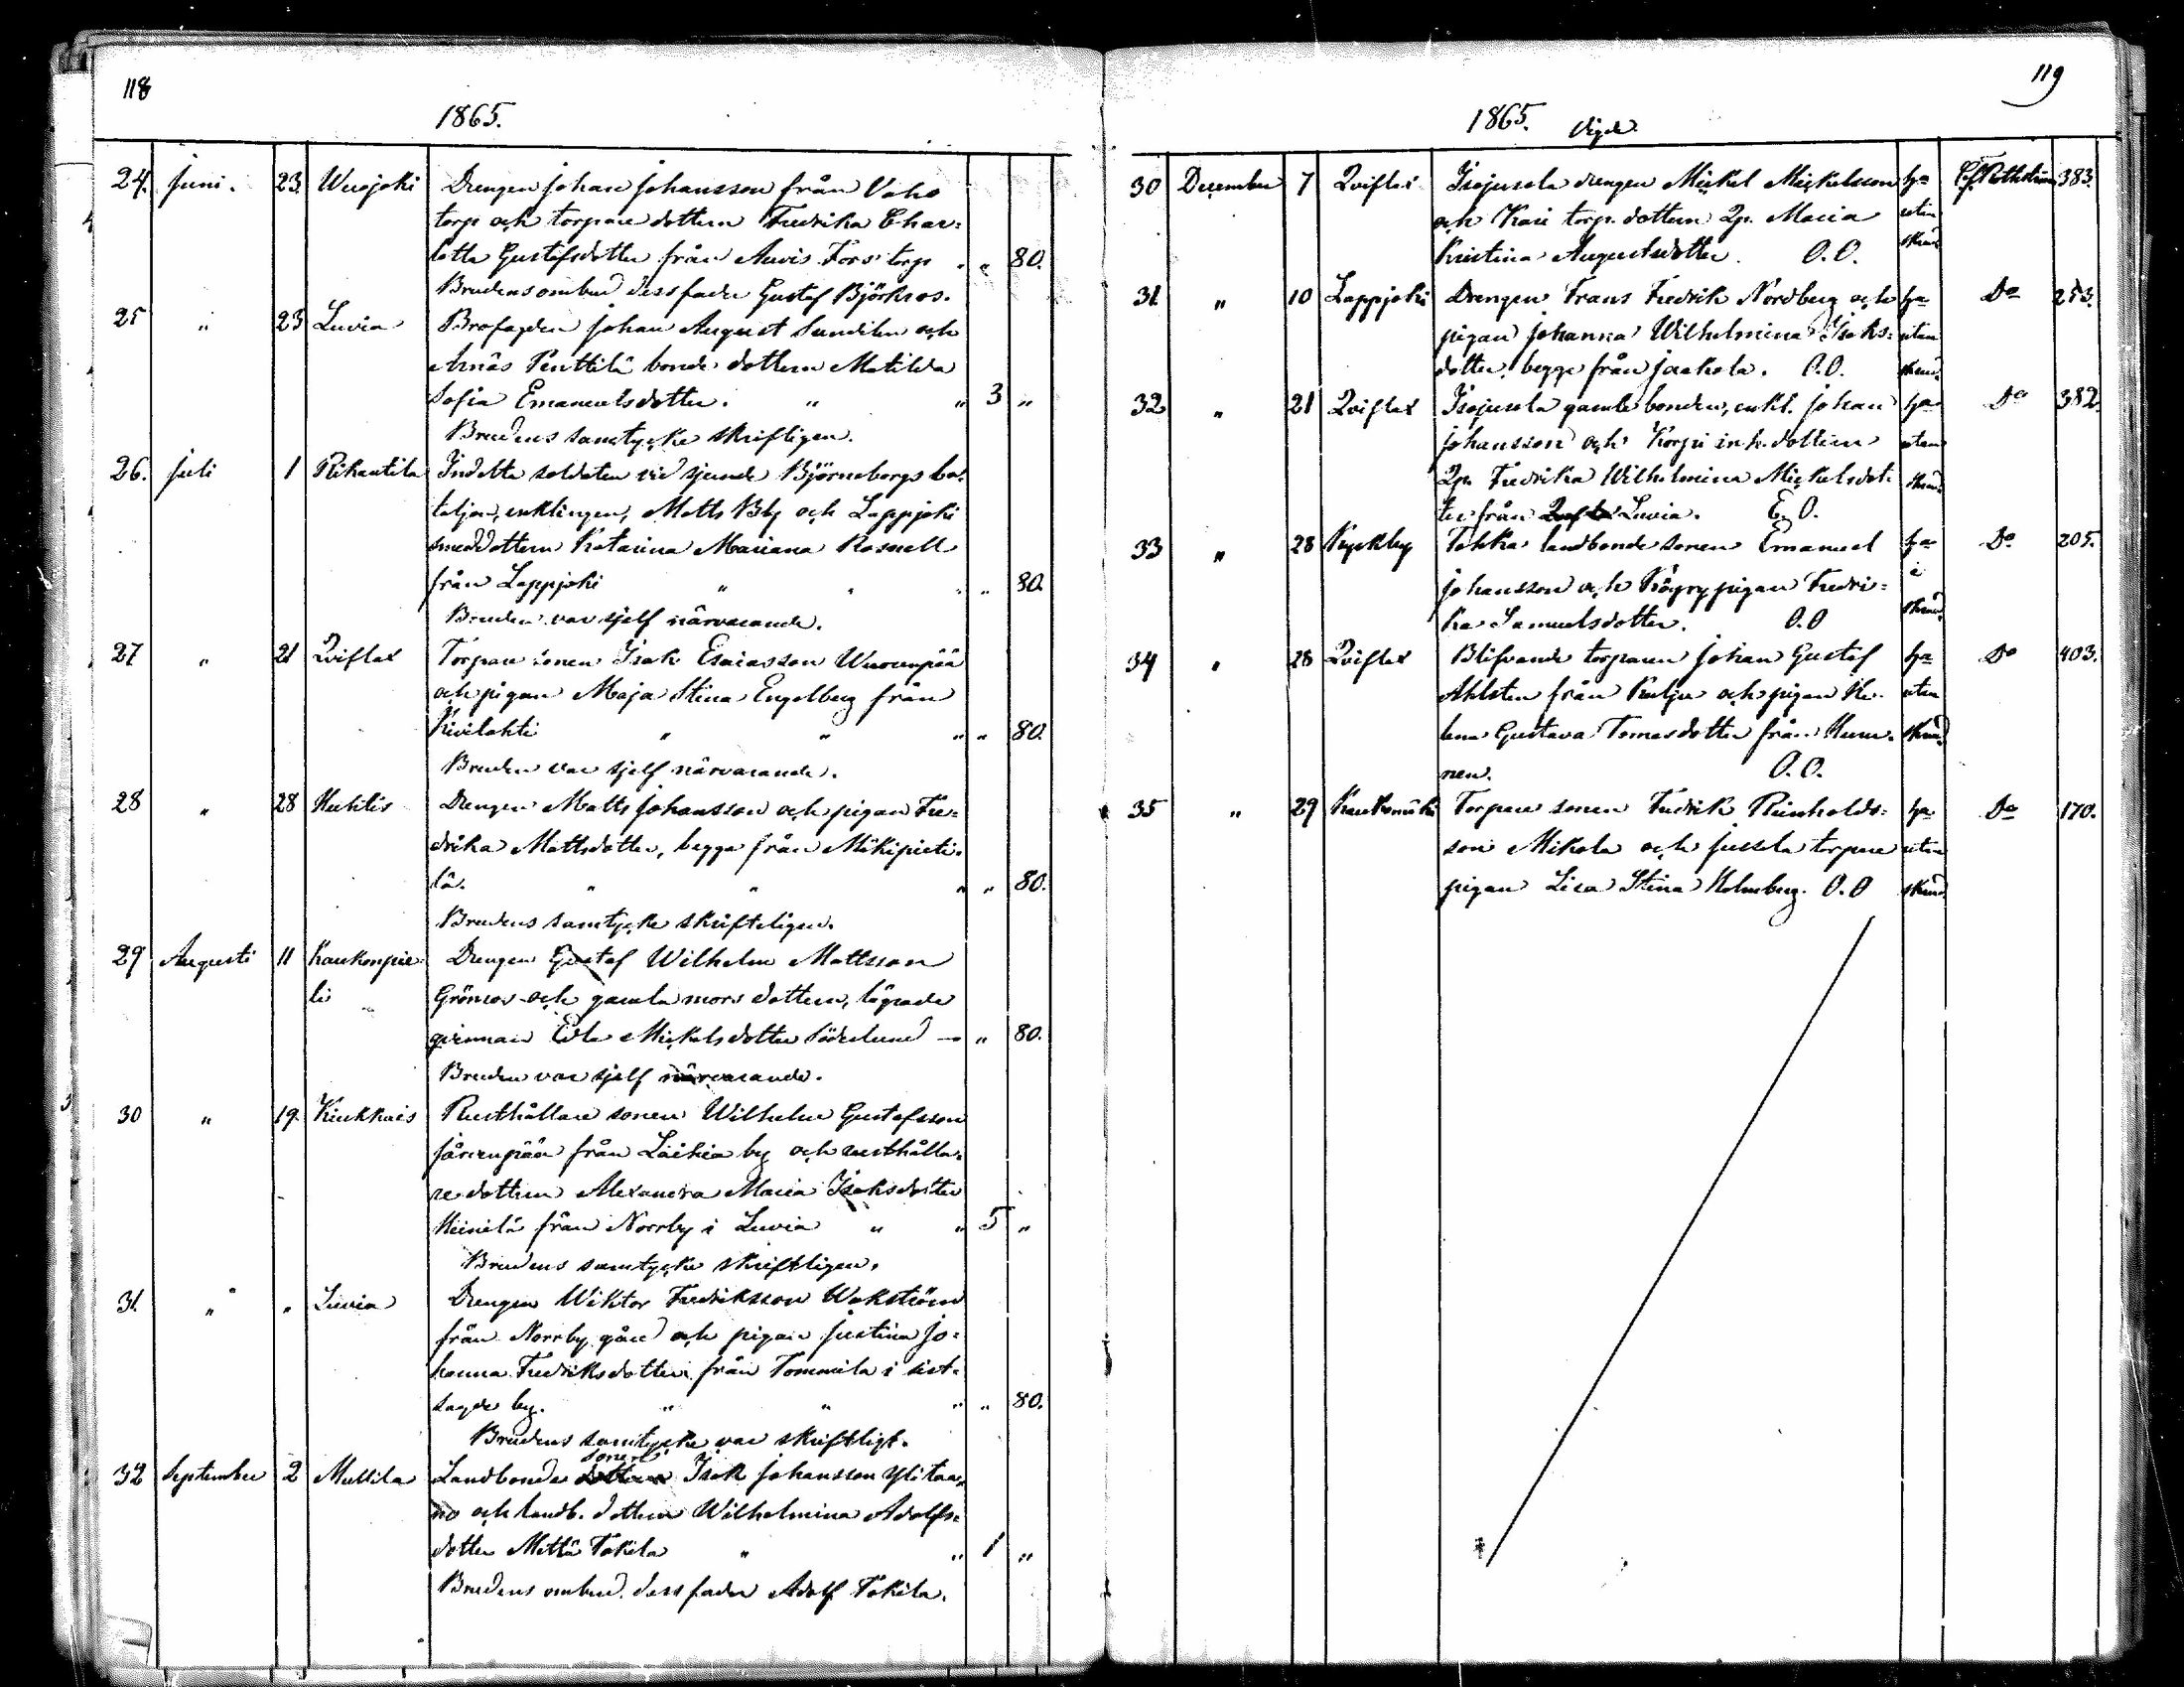 118
1865.
24. Juni. 23. Wuojoki Drengen Johan Johansson från Vaho
torp och torpare dottern Fredrika Char-
lotta Gustafsdotter från Auvis Fors torp " 80.
Brudens ombud dess fader Gustaf Björkros.
25 " 23 Luvia Johan August Sundelin och
Arnäs Penttilä bonde dottern Matilda
Sofia Emanuelsdotter. " " 3 "
Brudens samtycke skriftligen.
26. Juli 1 Rikantila Indelta soldaten vid sjunde Björneborgs ba-
taljon, enklingen, Matts Bly och Lappjoki
smeddottern Katarina Mariana Rosnell
från Lappjoki " " " 80.
Bruden var sjelf närvarande.
27 " 21 Qviflax Torpare sonen Isak Esaiasson Wuorenpää
och pigan Maja Stina Engelberg från
Kivilahti " " " " 80.
Bruden var sjelf närvarande.
28 " 28 Huhtis Drengen Matts Johansson och pigan Fre-
drika Mattsdotter, begge från Mikipieti-
lä. " " " " 80.
Brudens samtycke skrifteligen.
29 Augusti 11 Kaukonpie- Drengen Gustaf Wilhelm Mattsson
li Grönroos och gamla mors dottern, lägrade
qvinnan Eva Mickelsdotter Söderlund — " 80.
Bruden var sjelf närvarande.
30 " 19. Kiukkais Rusthållare sonen Wilhelm Gustafsson
Järvenpää från Laihia by och rusthålla-
re dottern Alexandra Maria Isaksdotter
Heinilä från Norrby i Luvia " " 5 "
Brudens samtycke skriftligen.
31. " " Luvia Drengen Wiktor Fredriksson Wakström
från Norrby gård och pigan Justina Jo-
hanna Fredriksdotter från Tommila i sist-
sagde by. " " " " 80.
Brudens samtycke var skriftligt.
sonen
32 September 2 Mullila Landbonde dottern Isak Johansson Ylitaa-
no och landb. dottern Wilhelmina Adolfs-
dotter Mettä Tokila " " 1 "
Brudens ombud dess fader Adolf Tokila.
119
1865. Vigde
30 December 7 Qviflax Isojusola drengen Mickel Mickelsson 383.
och Kari torp. dottern Qp. Maria utan
Kristina Augustsdotter. O.O.
31. " 10 Lappjoki Drengen Frans Fredrik Nordberg och Do 253.
pigan Johanna Wilhelmina Isaks- utan
dotter, begge från Jaakola. O.O.
32 " 21 Qviflax Isojusola gamle bonden, enkl. Johan Do 382
Johansson och Korpi inh. dottern utan
Qp. Fredrika Wilhelmina Mickelsdot-
ter från Luvia. E.O.
33 " 28 Kyrkby Tokka landbonde sonen Emanuel Do 205.
Johansson och pigan Fredri- i
ka Samuelsdotter. O.O
34 " 28 Qviflax Blifvande torparen Johan Gustaf Do 403.
Ahlsten från och pigan He- utan
lena Gustava Tomasdotter från Hum-
nen. O.O.
35 " 29 Kaukomäki Torpare sonen Fredrik Reinholds- Do 170.
son Mikola och Jussila torpare utan
pigan Lisa Stina Holmberg. O.O